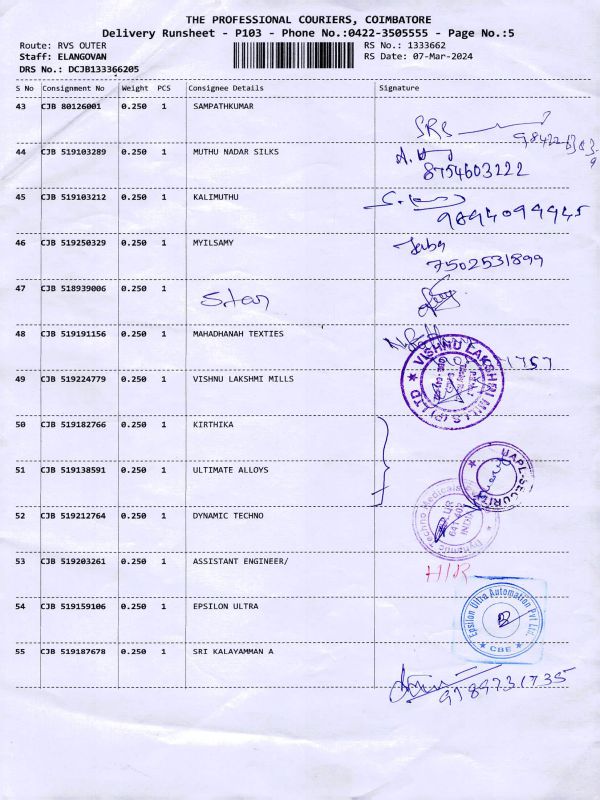 THE PROFESSIONAL COURIERS, COIMBATORE
Delivery Runsheet - P103 - Phone No.:0422-3505555 - Page No.:5
Route: RVS OUTER RS No.: 1333662
Staff: ELANGOVAN RS Date: 07-Mar-2024
DRS No.: DCJB133366205
S No Consignment No Weight PCS Consignee Details Signature
43 CJB 80126001 0.250 1 SAMPATHKUMAR
SRS
44 CJB 519103289 0.250 1 MUTHU NADAR SILKS
8754603222
45 CJB 519103212 0.250 1 KALIMUTHU
9894099945
46 CJB 519250329 0.250 1 MYILSAMY
7502531899
47 CJB 518939006 0.250 1
48 CJB 519191156 0.250 1 MAHADHANAH TEXTIES
1757
49 CJB 519224779 0.250 1 VISHNU LAKSHMI MILLS
VISHNU LAKSHMI MILLS (P) LTD
50 CJB 519182766 0.250 1 KIRTHIKA
51 CJB 519138591 0.250 1 ULTIMATE ALLOYS
UAPL-SECURITY
52 CJB 519212764 0.250 1 DYNAMIC TECHNO
Dynamic Techno Medicals
53 CJB 519203261 0.250 1 ASSISTANT ENGINEER/
54 CJB 519159106 0.250 1 EPSILON ULTRA
Epsilon Ultra Automation Pvt Ltd.
CBE
55 CJB 519187678 0.250 1 SRI KALAYAMMAN A
9789731735